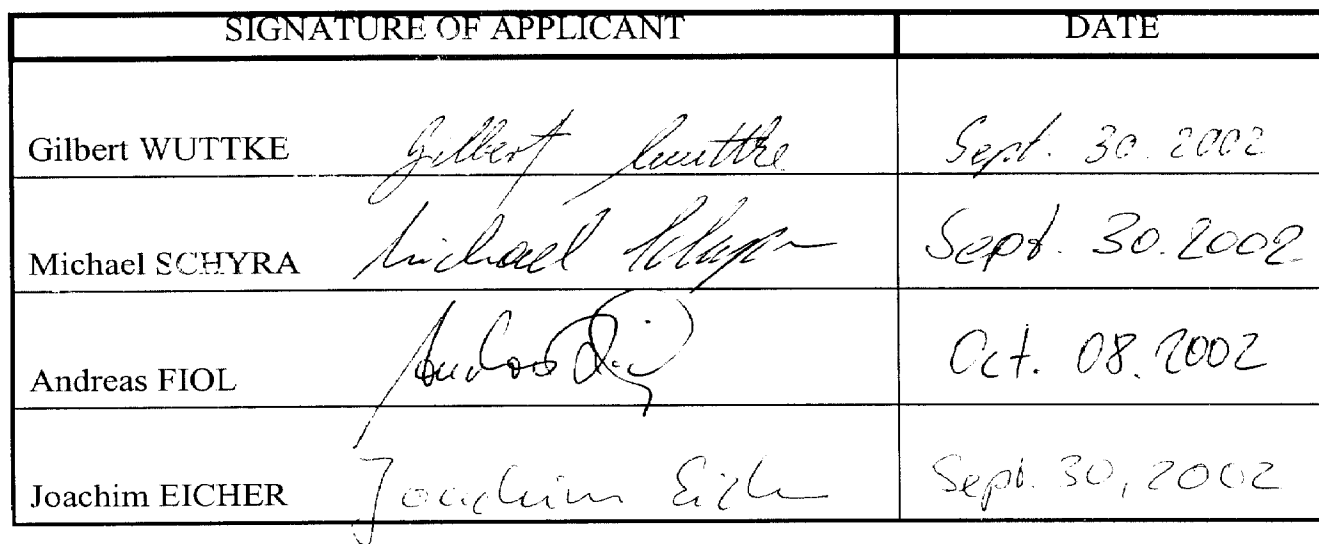 SIGNATURE OF APPLICANT DATE
Gilbert WUTTKE Gilbert Wuttke Sept. 30. 2002
Michael SCHYRA Michael Schyra Sept. 30. 2002
Andreas FIOL Andreas Fiol Oct. 08. 2002
Joachim EICHER Joachim Eicher Sept. 30, 2002